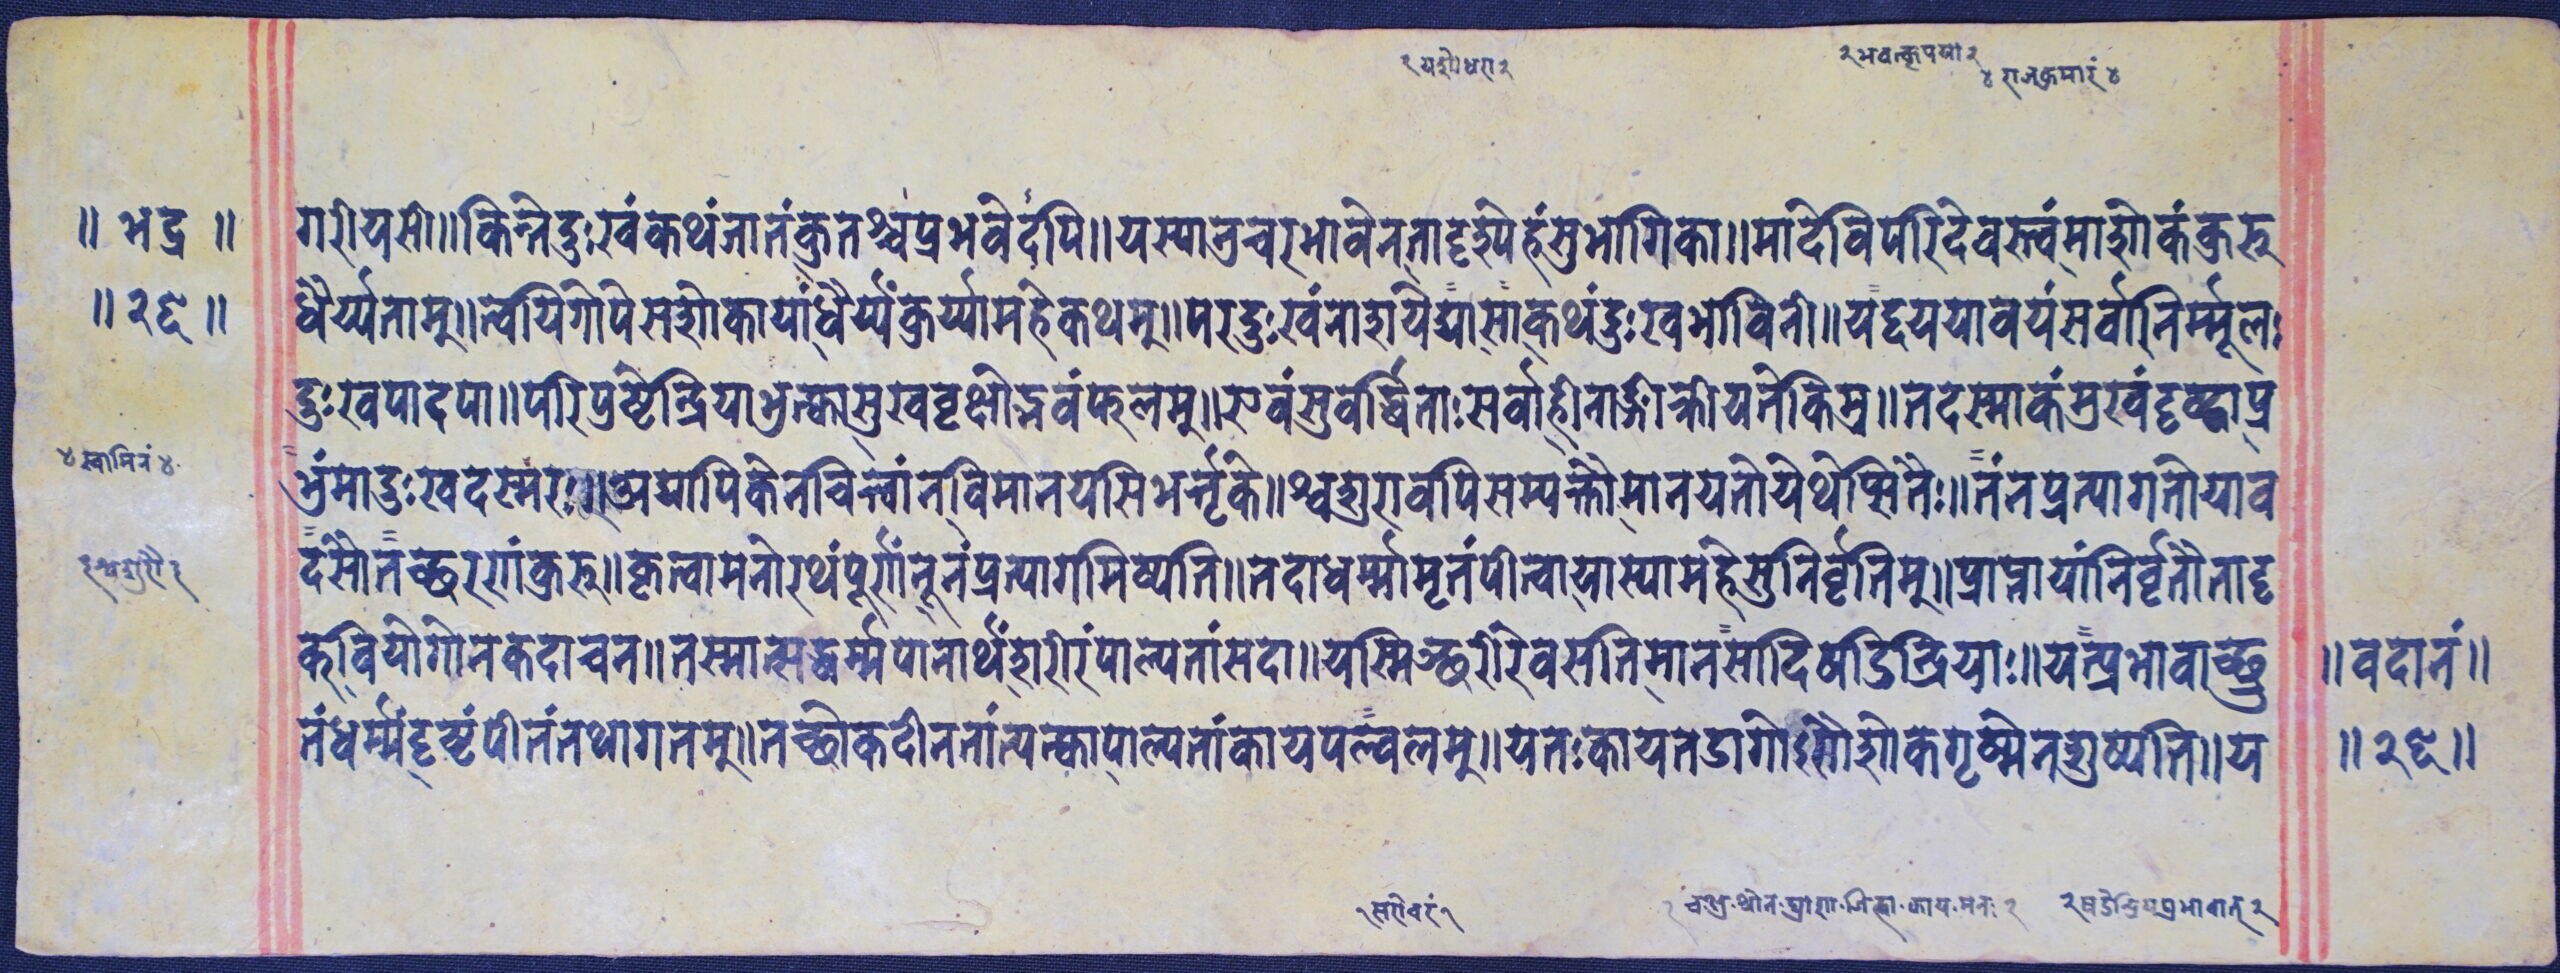 १ यशोधरा २
२ भवत्कृपया २
४ राजकुमारं ४
॥ भद्र ॥
गरीयसी॥किन्तेदुःखंकथंजातंकुतश्चप्रभवेदपि॥यस्यानुचरभावेनतादृश्येहंसुभागिका॥मादेविपरिदेवस्त्वंमाशोकंकुरु
॥ २९ ॥
धैर्य्यताम्॥त्वयिगोपेसशोकायांधैर्य्यंकुर्य्यामहेकथम्॥परदुःखंनाशयेद्यासाकथंदुःखभाविनी॥यद्दययावयंसर्वानिर्म्मूल
दुःखपादपा॥परिपुष्टेन्द्रियाभुक्त्वासुखवृक्षोद्भवंफलम्॥एवंसुवर्द्धिताःसर्वाहीनाङ्गीक्रीयतेकिमु॥तदस्माकंमुखंदृष्ट्वाप्र
४ स्वामिनं ४
भुंमादुःखदस्मर॥अद्यापिकेनचित्त्वांनविमानयसिभर्त्तृके॥श्वशुरावपिसम्पन्नौमानयतोयथेप्सितैः॥तंनप्रत्यागतोयाव
२ श्वशुरौ २
दंसौतच्छरणंकुरु॥कृत्वामनोरथंपूर्णंनूनंप्रत्यागमिष्यति॥तदाधर्म्मामृतंपीत्वायास्यामहेसुनिर्वृतिम्॥प्राप्तायांनिर्वृतौतादृ
क्वियोगोनकदाचन॥तस्मात्सद्धर्म्मपानार्थंशरीरंपाल्यतांसदा॥यस्मिञ्छरीरेवसतिमानसादिषडिन्द्रियाः॥यत्प्रभावाच्छ्रु
॥ वदानं ॥
तंधर्म्मंदृष्टंपीतंतथागतम्॥तच्छोकदीनतांत्यक्त्वापाल्यतांकायपल्वलम्॥यतःकायतडागोसौशोकगृष्मेनशुष्यति॥य
॥ २९ ॥
१ सरोवरं १
२ चक्षु·श्रोत्र·घ्राण·जिह्वा·काय·मनः २
२ षडेन्द्रियप्रभावात् २